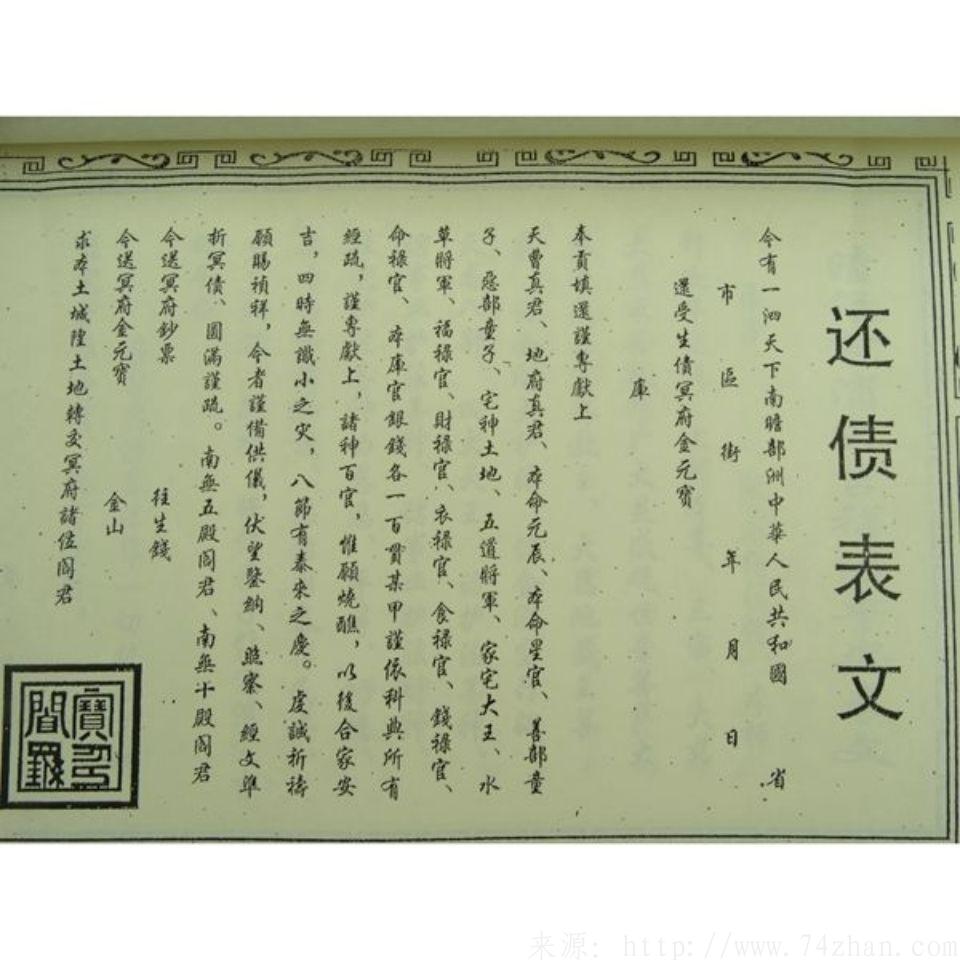 还债表文
今有一泗天下南瞻部洲中華人民共和國　省
市　區　街　年　月　日
還受生債冥府金元寶
庫
奉貢填還謹專獻上
天曹真君、地府真君、本命元辰、本命星官、善部童
子、惡部童子、宅神土地、五道將軍、家宅大王、水
草將軍、福祿官、財祿官、衣祿官、食祿官、錢祿官、
命祿官、本庫官銀錢各一百貫某甲謹依科典所有
經疏，謹專獻上，諸神百官，惟願燒醮，以後合家安
吉，四時無讖小之灾，八節有泰來之慶。虔誠祈禱
願賜禎祥，今者謹備供儀，伏望鑒納、照察、經文準
折冥債、圓滿謹疏。南無五殿閻君、南無十殿閻君
今送冥府鈔票　往生錢
今送冥府金元寶　金山
求本土城隍土地轉交冥府諸位閻君
來源: http://www.74zhan.com